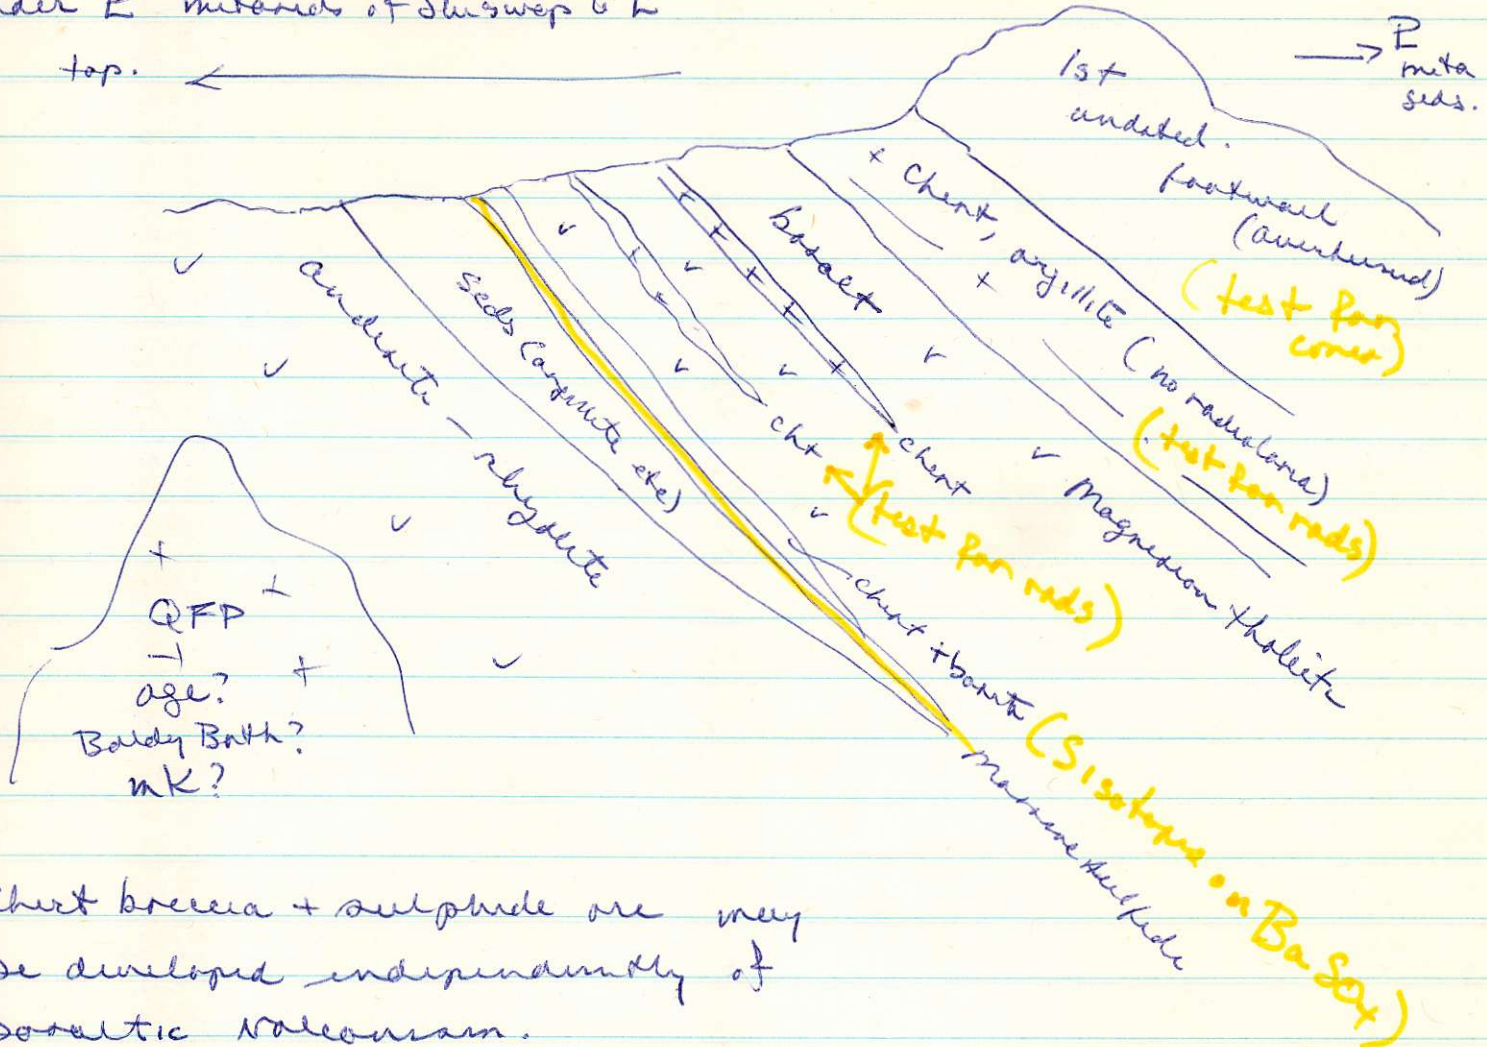 metaseds of Shuswap
top.
E
meta
seds.
lst
undated.
footwall
(overturned)
(test for
cones)
x Chert, argillite (no radiolaria)
(test for rads)
basalt
Magnesian tholeiite
chert
cht
(test for rads)
chert + barite (S isotopes on BaSO4)
massive sulfide
seds (argillite etc)
andesite – rhyolite
QFP
age?
Baldy Bath?
mK?
chert breccia + sulphide are may
be developed independently of
basaltic volcanism.